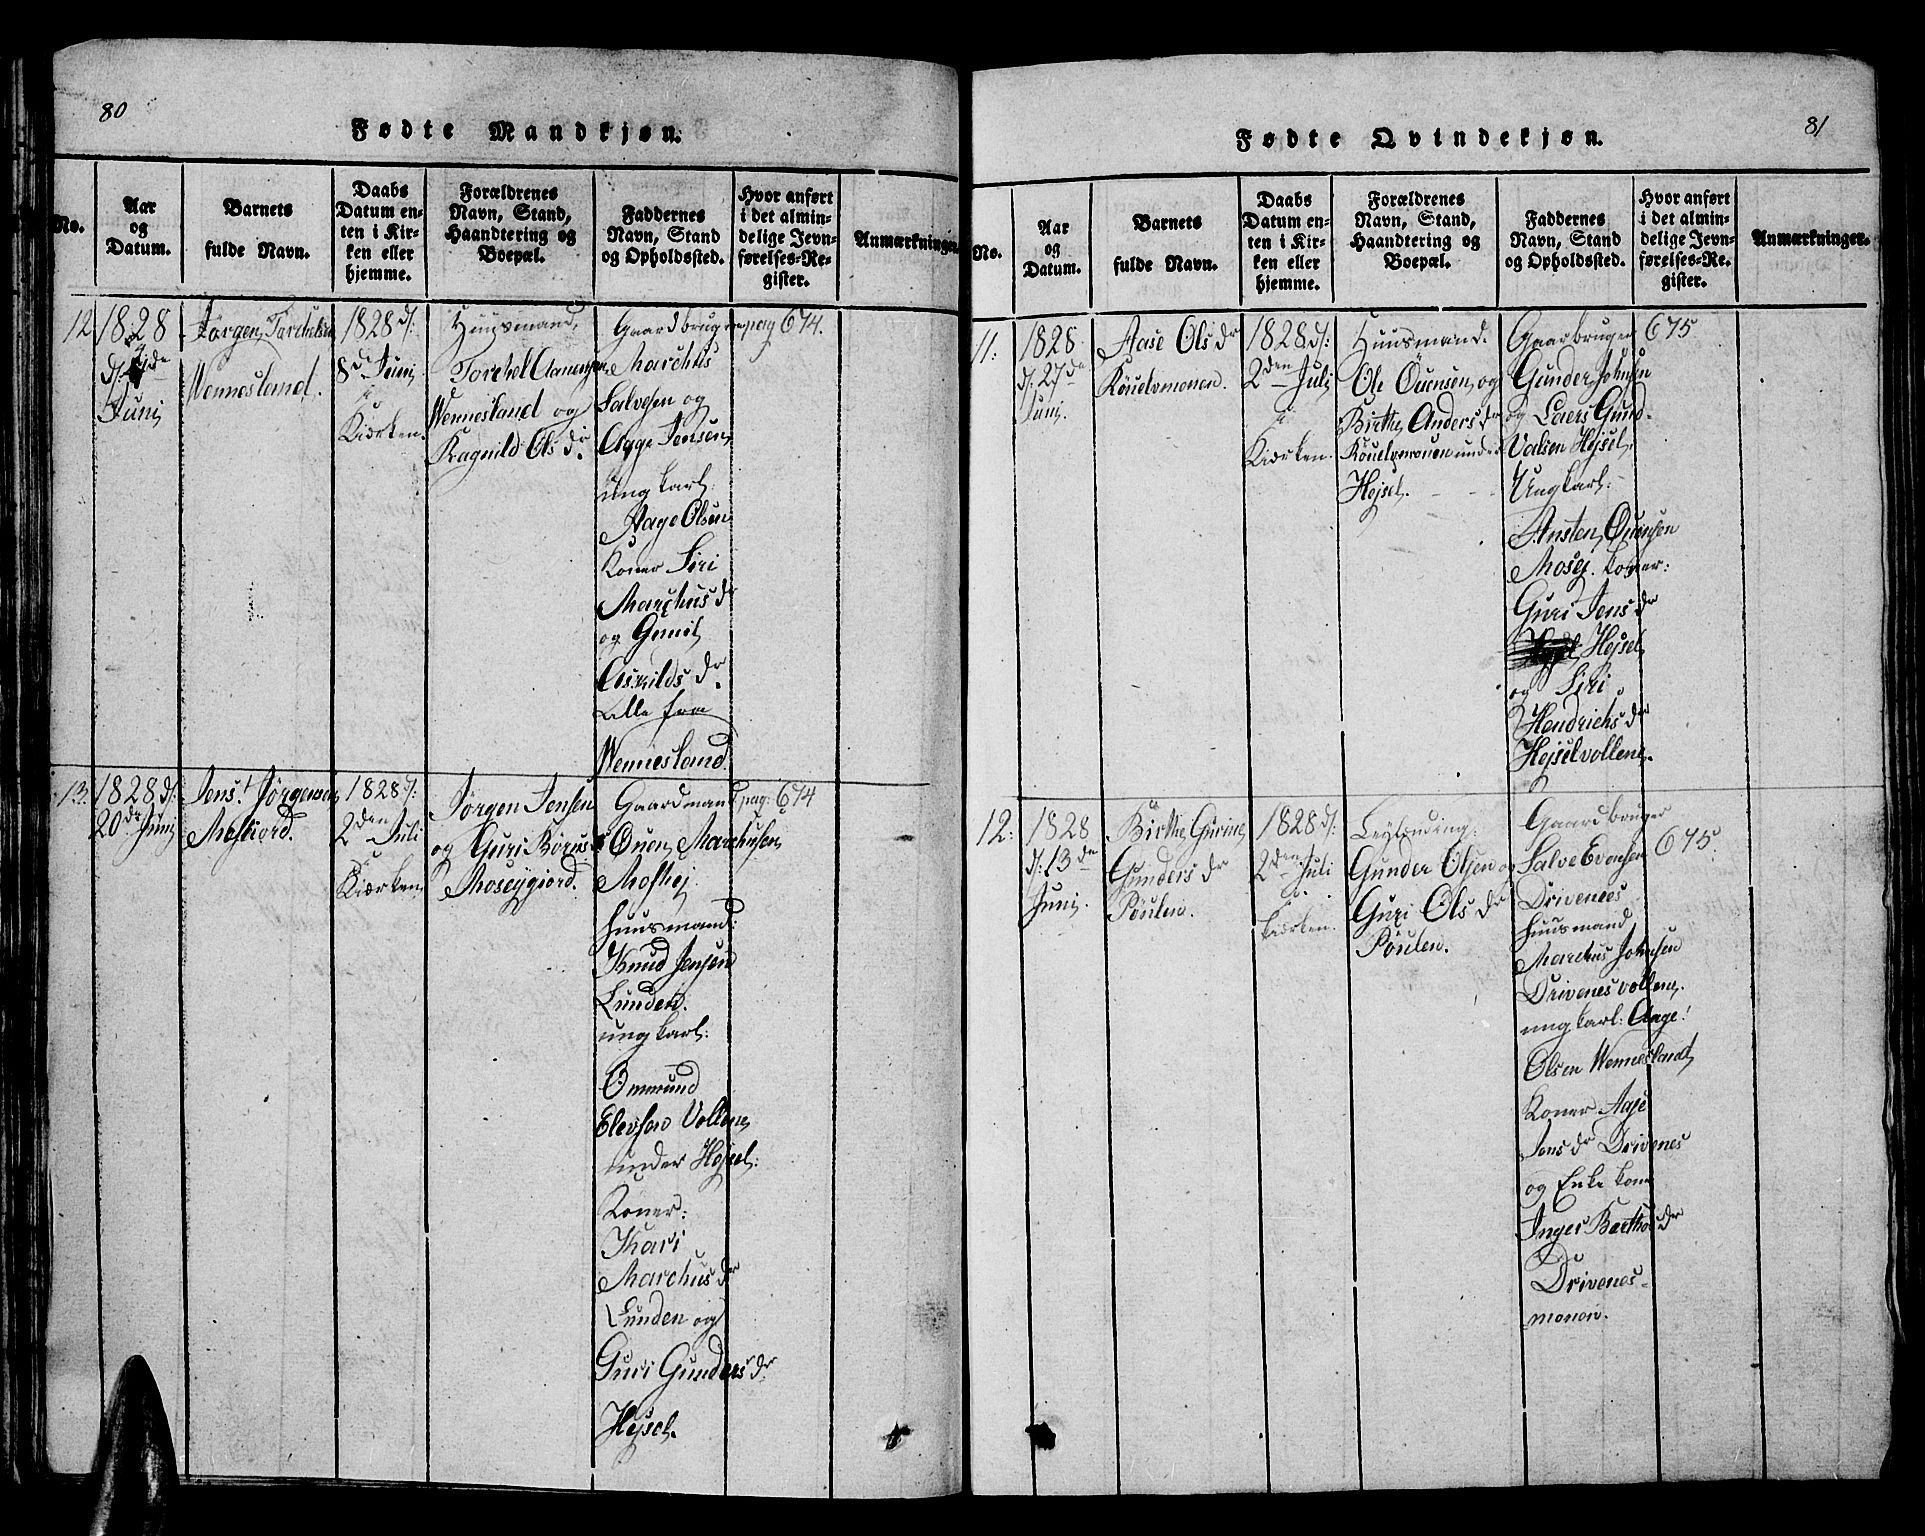 80
Fødte Mandkjøn.
No.
Aar
og
Datum.
Barnets
fulde Navn.
Daabs
Datum en-
ten i Kir-
ken eller
hjemme.
Forældrenes
Navn, Stand,
Haandtering og
Boepæl.
Faddernes
Navn, Stand
og Opholdssted.
Hvor anført
i det almin-
delige Jevn-
førelses-Re-
gister.
Anmærkninger.
12
1828
Juni
Jørgen Torchelsen
Wennesland.
1828 d:
8de Juni
i
Kiærken.
Huusmand,
Torchel Aanensen
Wennesland og
Ragnild Ols dr.
Gaardbruger
Marchus
Salvesen og
Aage Jensen,
ungkarl:
Aage Olsen
Koner Siri
Marchus dr
og Gunil
Asskilds dr.
alle fra
Wennesland.
pag 674.
13.
1828 d:
20de Juni
Jens Jørgensen
Mosiord.
1828 d:
2den Juli
i
Kiærken
Jørgen Jensen
og Guri
Moseygiord.
Gaardmand
Ouen Marchusen
Moshej.
huusmand:
Knud Jensen
Lunden.
ungkarl:
Ommund
Elevsen Vollen
under Hejsel:
Koner:
Thari
Marchus dr
Lunden og
Guri Gunders dr.
Hejsel.
pag: 674
81
Fødte Qvindekjøn.
No.
Aar
og
Datum.
Barnets
fulde Navn.
Daabs
Datum en-
ten i Kir-
ken eller
hjemme.
Forældrenes
Navn, Stand,
Haandtering og
Boepæl.
Faddernes
Navn, Stand
og Opholdssted.
Hvor anført
i det almin-
delige Jevn-
førelses-Re-
gister.
Anmærkninger.
11:
1828
d: 27de
Juni.
Aase Ols dr
1828 d:
2den Juli
i
Kiærken.
Huusmand.
Ole Ouensen og
Birthe Anders dr
under
Hejsel.
Gaarbruger
Gunder Johnsen
og Laers Gund-
Valsen Hejsel.
Ungkarl:
Ansten Ouensen
Mosej. Koner:
Guri Jens dr
Hejsel
og Siri
Hendrichs dr
Hejselvollene.
675.
12:
1828
d: 13de
Juni.
Birthe Gurine
Gunders dr
Poulen.
1828 d:
2den Juli
i
kiærken.
Leylending:
Gunder Olsen og
Guri Ols dr
Poulen.
Gaardbruger
Salve Evensen
Drivenes
huusmand
Marchus Johnsen
Drivenesvollene.
ungkarl: Aage
Olsen Wennesland
Koner Aase
Jens dr Drivenes
og Enkekone
Inger Barthos dr
Drivenes-
monen.
675.